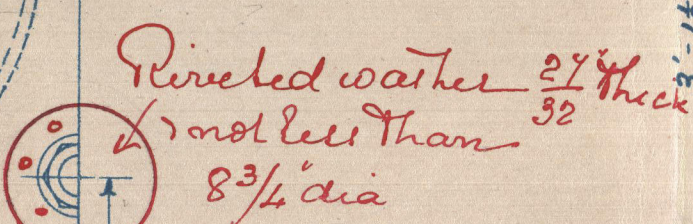 Riveted washer 27/32" thick
& not less than
8 3/4" dia